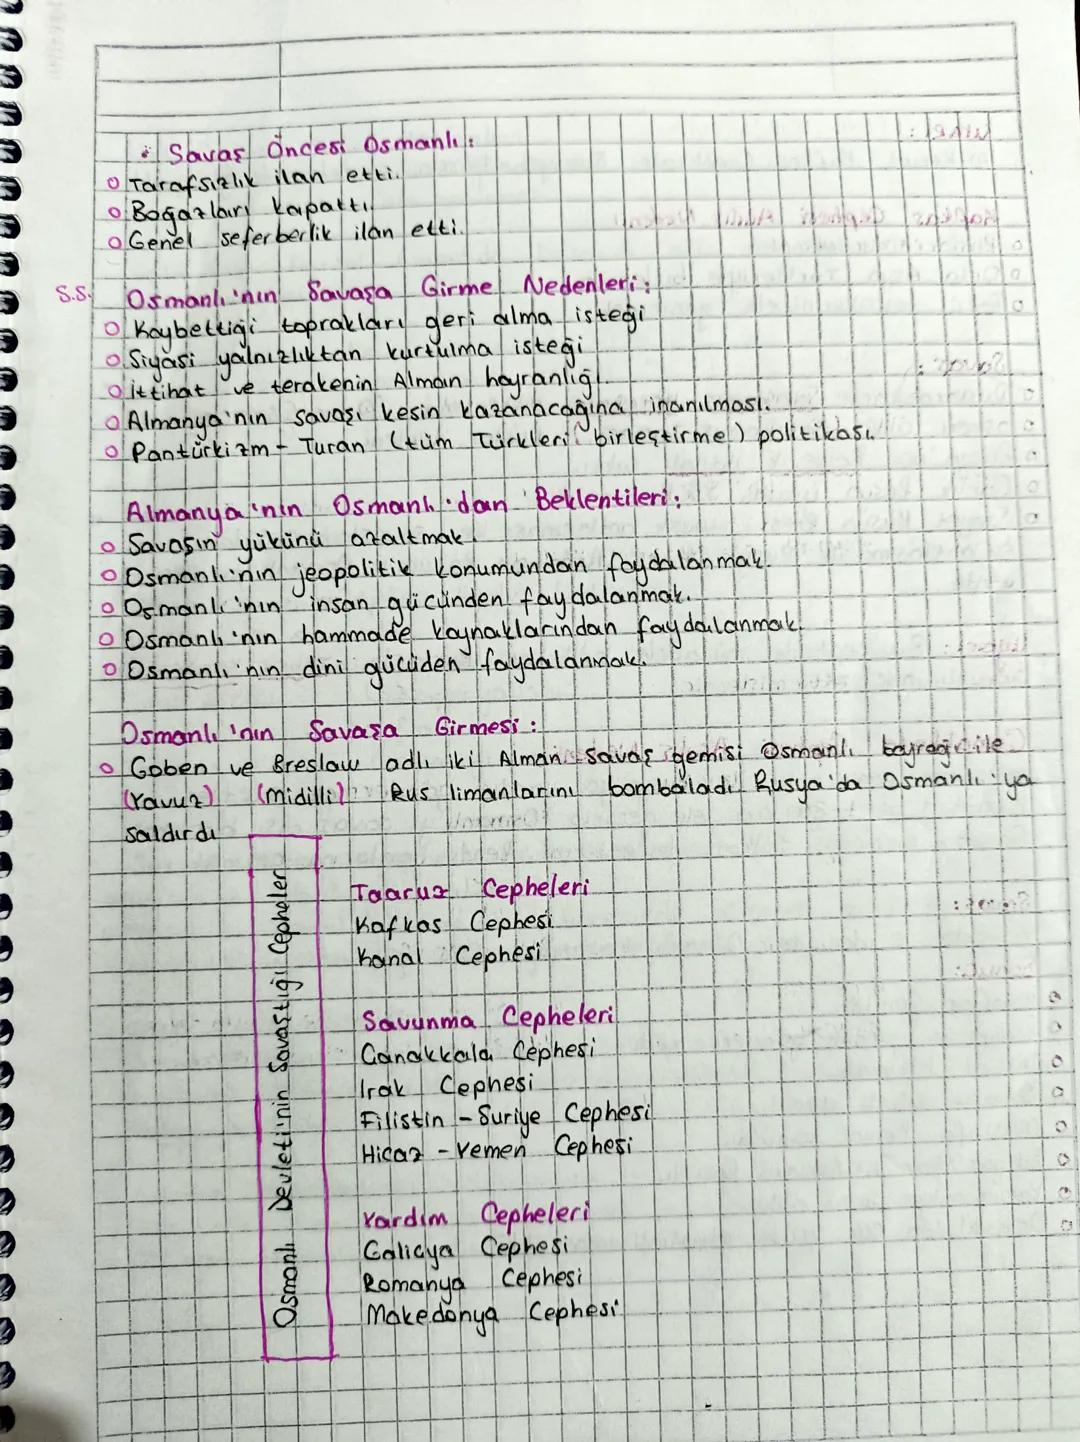 Savaş Öncesi Osmanlı:
Tarafsızlık ilan etti.
Boğazları kapattı.
Genel seferberlik ilan etti.
S.S. Osmanlı'nın Savaşa Girme Nedenleri:
Kaybettiği toprakları geri alma isteği
Siyasi yalnızlıktan kurtulma isteği
İttihat ve terakenin Alman hayranlığı.
Almanya'nın savaşı kesin kazanacağına inanılması.
Pantürkizm - Turan (tüm Türkleri birleştirme) politikası.
Almanya'nın Osmanlı'dan Beklentileri:
Savaşın yükünü azaltmak.
Osmanlı'nın jeopolitik konumundan faydalanmak.
Osmanlı'nın insan gücünden faydalanmak.
Osmanlı'nın hammade kaynaklarından faydalanmak.
Osmanlı'nın dini gücüden faydalanmak.
Osmanlı'nın Savaşa Girmesi:
Goben ve Breslaw adlı iki Alman savaş gemisi Osmanlı bayrağı ile
(Yavuz) (midilli) Rus limanlarını bombaladı Rusya'da Osmanlı'ya
saldırdı
Osmanlı Devleti'nin Savaştığı Cepheler
Taaruz Cepheleri
Kafkas Cephesi
Kanal Cephesi
Savunma Cepheleri
Canakkala Cephesi
Irak Cephesi
Filistin - Suriye Cephesi
Hicaz - Yemen Cephesi
Yardım Cepheleri
Galicya Cephesi
Romanya Cephesi
Makedonya Cephesi